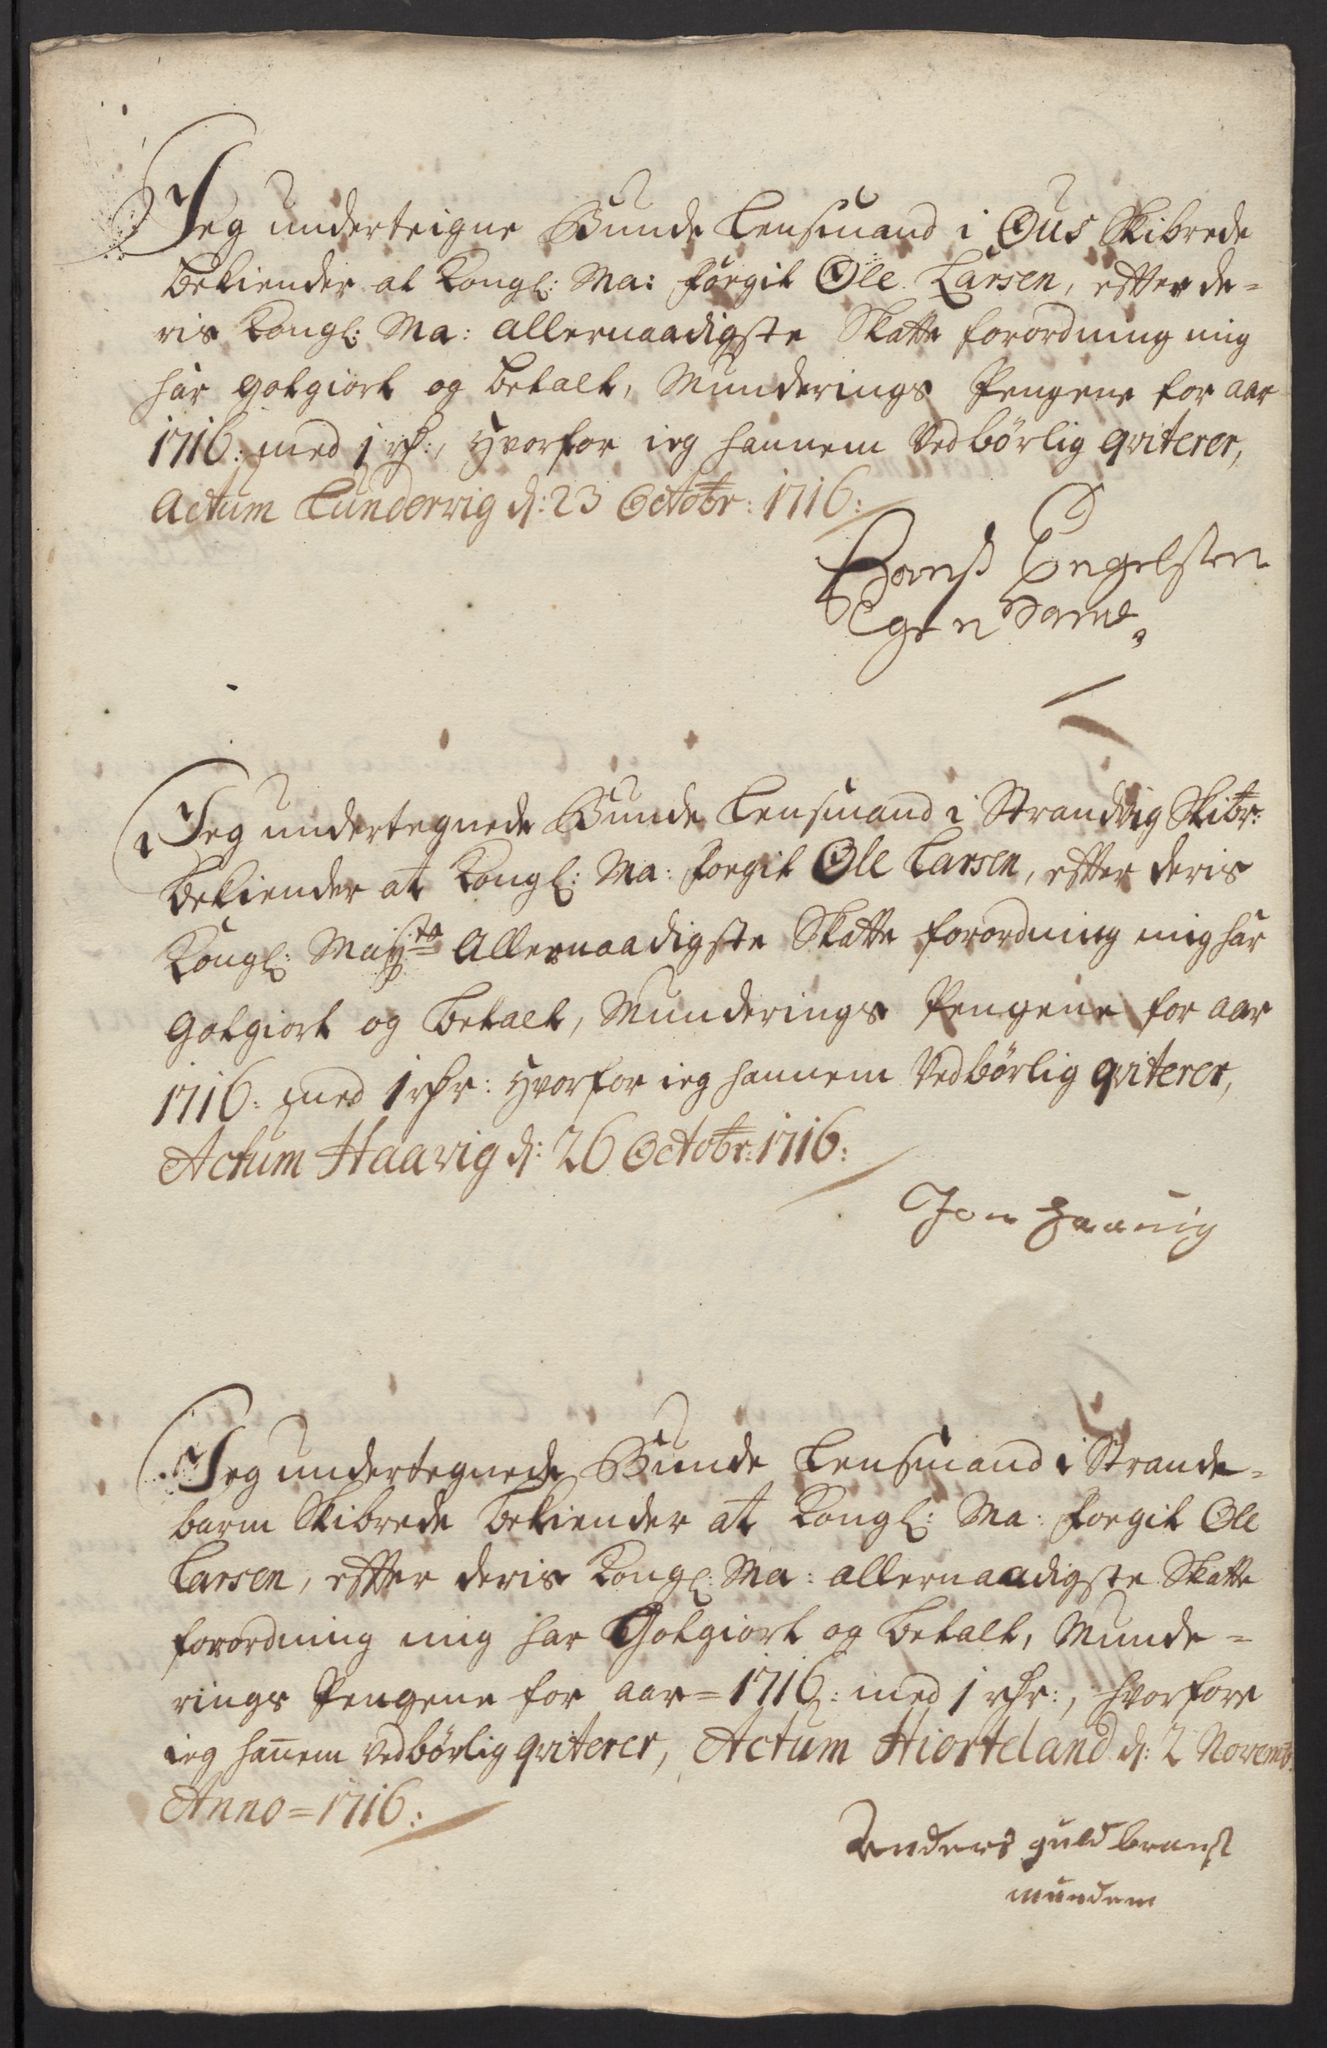 Jeg underteigne Bunde Lensmand i Ous Skibrede
bekiender at Kongl: Ma: fougit Ole Larsen, efter de=
ris Kongl: Ma: allernaadigste Skatte forordning mig
har gotgiort og betalt, Munderings Pengene for aar
1716: med 1 rdr:, hvorfor ieg hannem Vedbørlig qviterer,
Actum Lundervig d: 23 Octobr: 1716:
Hanß Engelsen
Egen Hand
Jeg undertegnede Bunde Lensmand i Strandvig Skibr:
bekiender at Kongl: Ma: fougit Ole Larsen, efter deris
Kongl: Mayts Allernaadigste Skatte forordning mig har
gotgiort og betalt, Munderings Pengene for aar
1716: med 1 rdr: hvorfor ieg hannem Vedbørlig qviterer,
Actum Haavig d: 26 Octobr: 1716:
Jon Haauig
Jeg undertegnede Bunde Lensmand i Strande=
barm Skibrede bekiender at Kongl: Ma: fougit Ole
Larsen, efter deris Kongl: Ma: allernaadigste Skatte
forordning mig har Gotgiort og betalt, Munde=
rings Pengene for aar = 1716: med 1 rdr:, hvorfore
ieg hannem vedbørlig qviterer, Actum Hiorteland d: 2 Novemb:
Anno = 1716:
Anders guldbranß